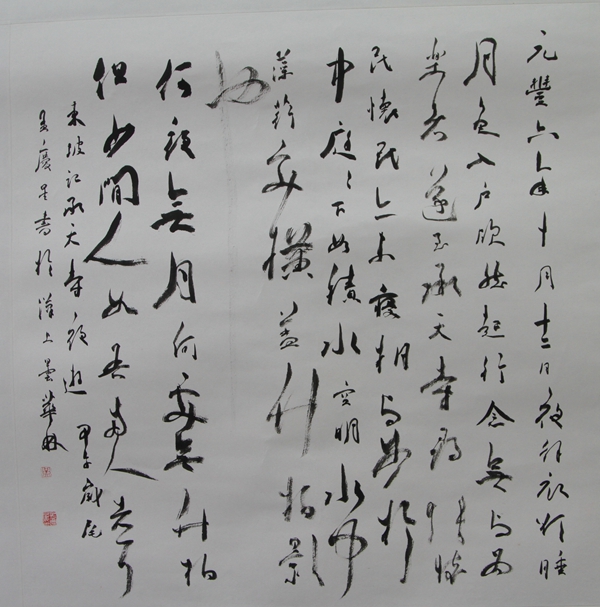 元豐六年十月十二日夜解衣欲睡
月色入户欣然起行念無與爲
樂者遂至承天寺尋張懷
民懷民亦未寢相與步於
中庭々下如積水空明水中
藻荇交橫蓋竹柏影
也
何夜無月何處無竹柏
但少閒人如吾兩人者耳
東坡記承天寺夜遊 甲午歲尾
慶書於漢上曇華林